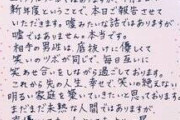 新年度ということで、本日ご報告させて
いただきます。嘘みたいな話ではありますが
嘘ではありません。本当です。
相手の男性は、底抜けに優しくて
笑いのツボが同じで、毎日互いに
笑わせ合いをしながら過ごしております。
これから先の人生、幸せで、笑いの絶えない
明るい家庭を築いていきたいと思っております。
まだまだ未熟な人間ではありますが